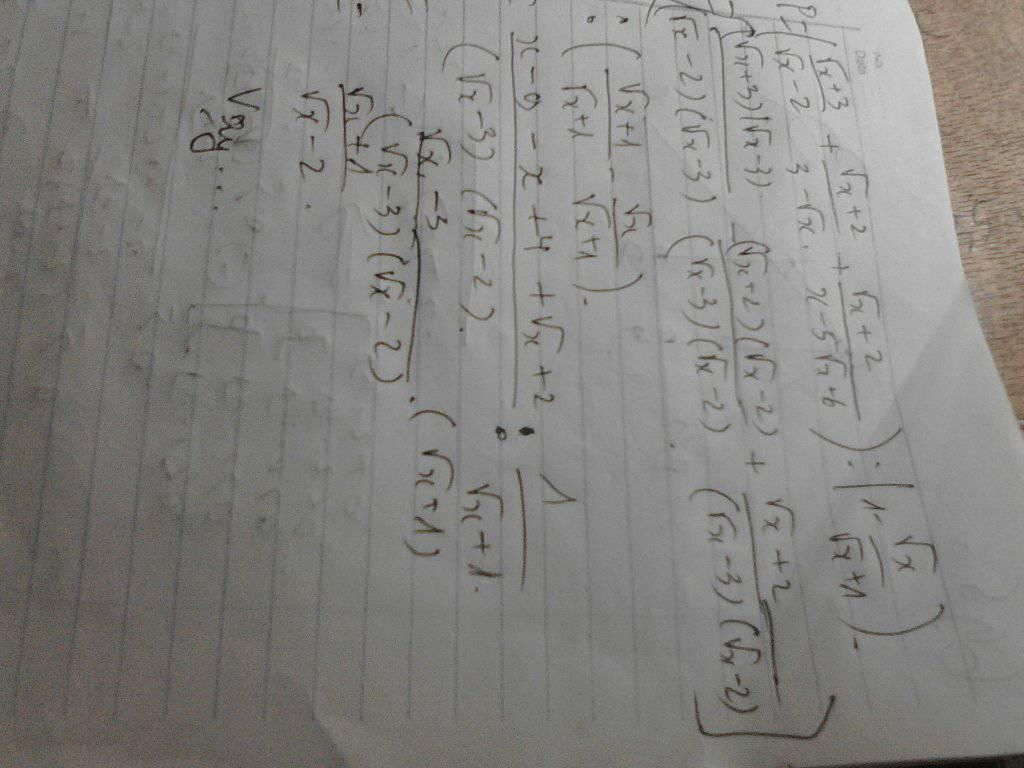 P = ( (√x+3)/(√x-2) + (√x+2)/(3-√x) + (√x+2)/(x-5√x+6) ) : ( 1 - √x/(√x+1) ) =
[ (√x+3)(√x-3)/(√x-2)(√x-3) - (√x+2)(√x-2)/(√x-3)(√x-2) + (√x+2)/(√x-3)(√x-2) ]
: ( (√x+1)/(√x+1) - √x/(√x+1) ).
= (x-9-x+4+√x+2)/(√x-3)(√x-2) : 1/(√x+1).
= (√x-3)/(√x-3)(√x-2) . (√x+1)
(√x+1)/(√x-2).
Vậy...